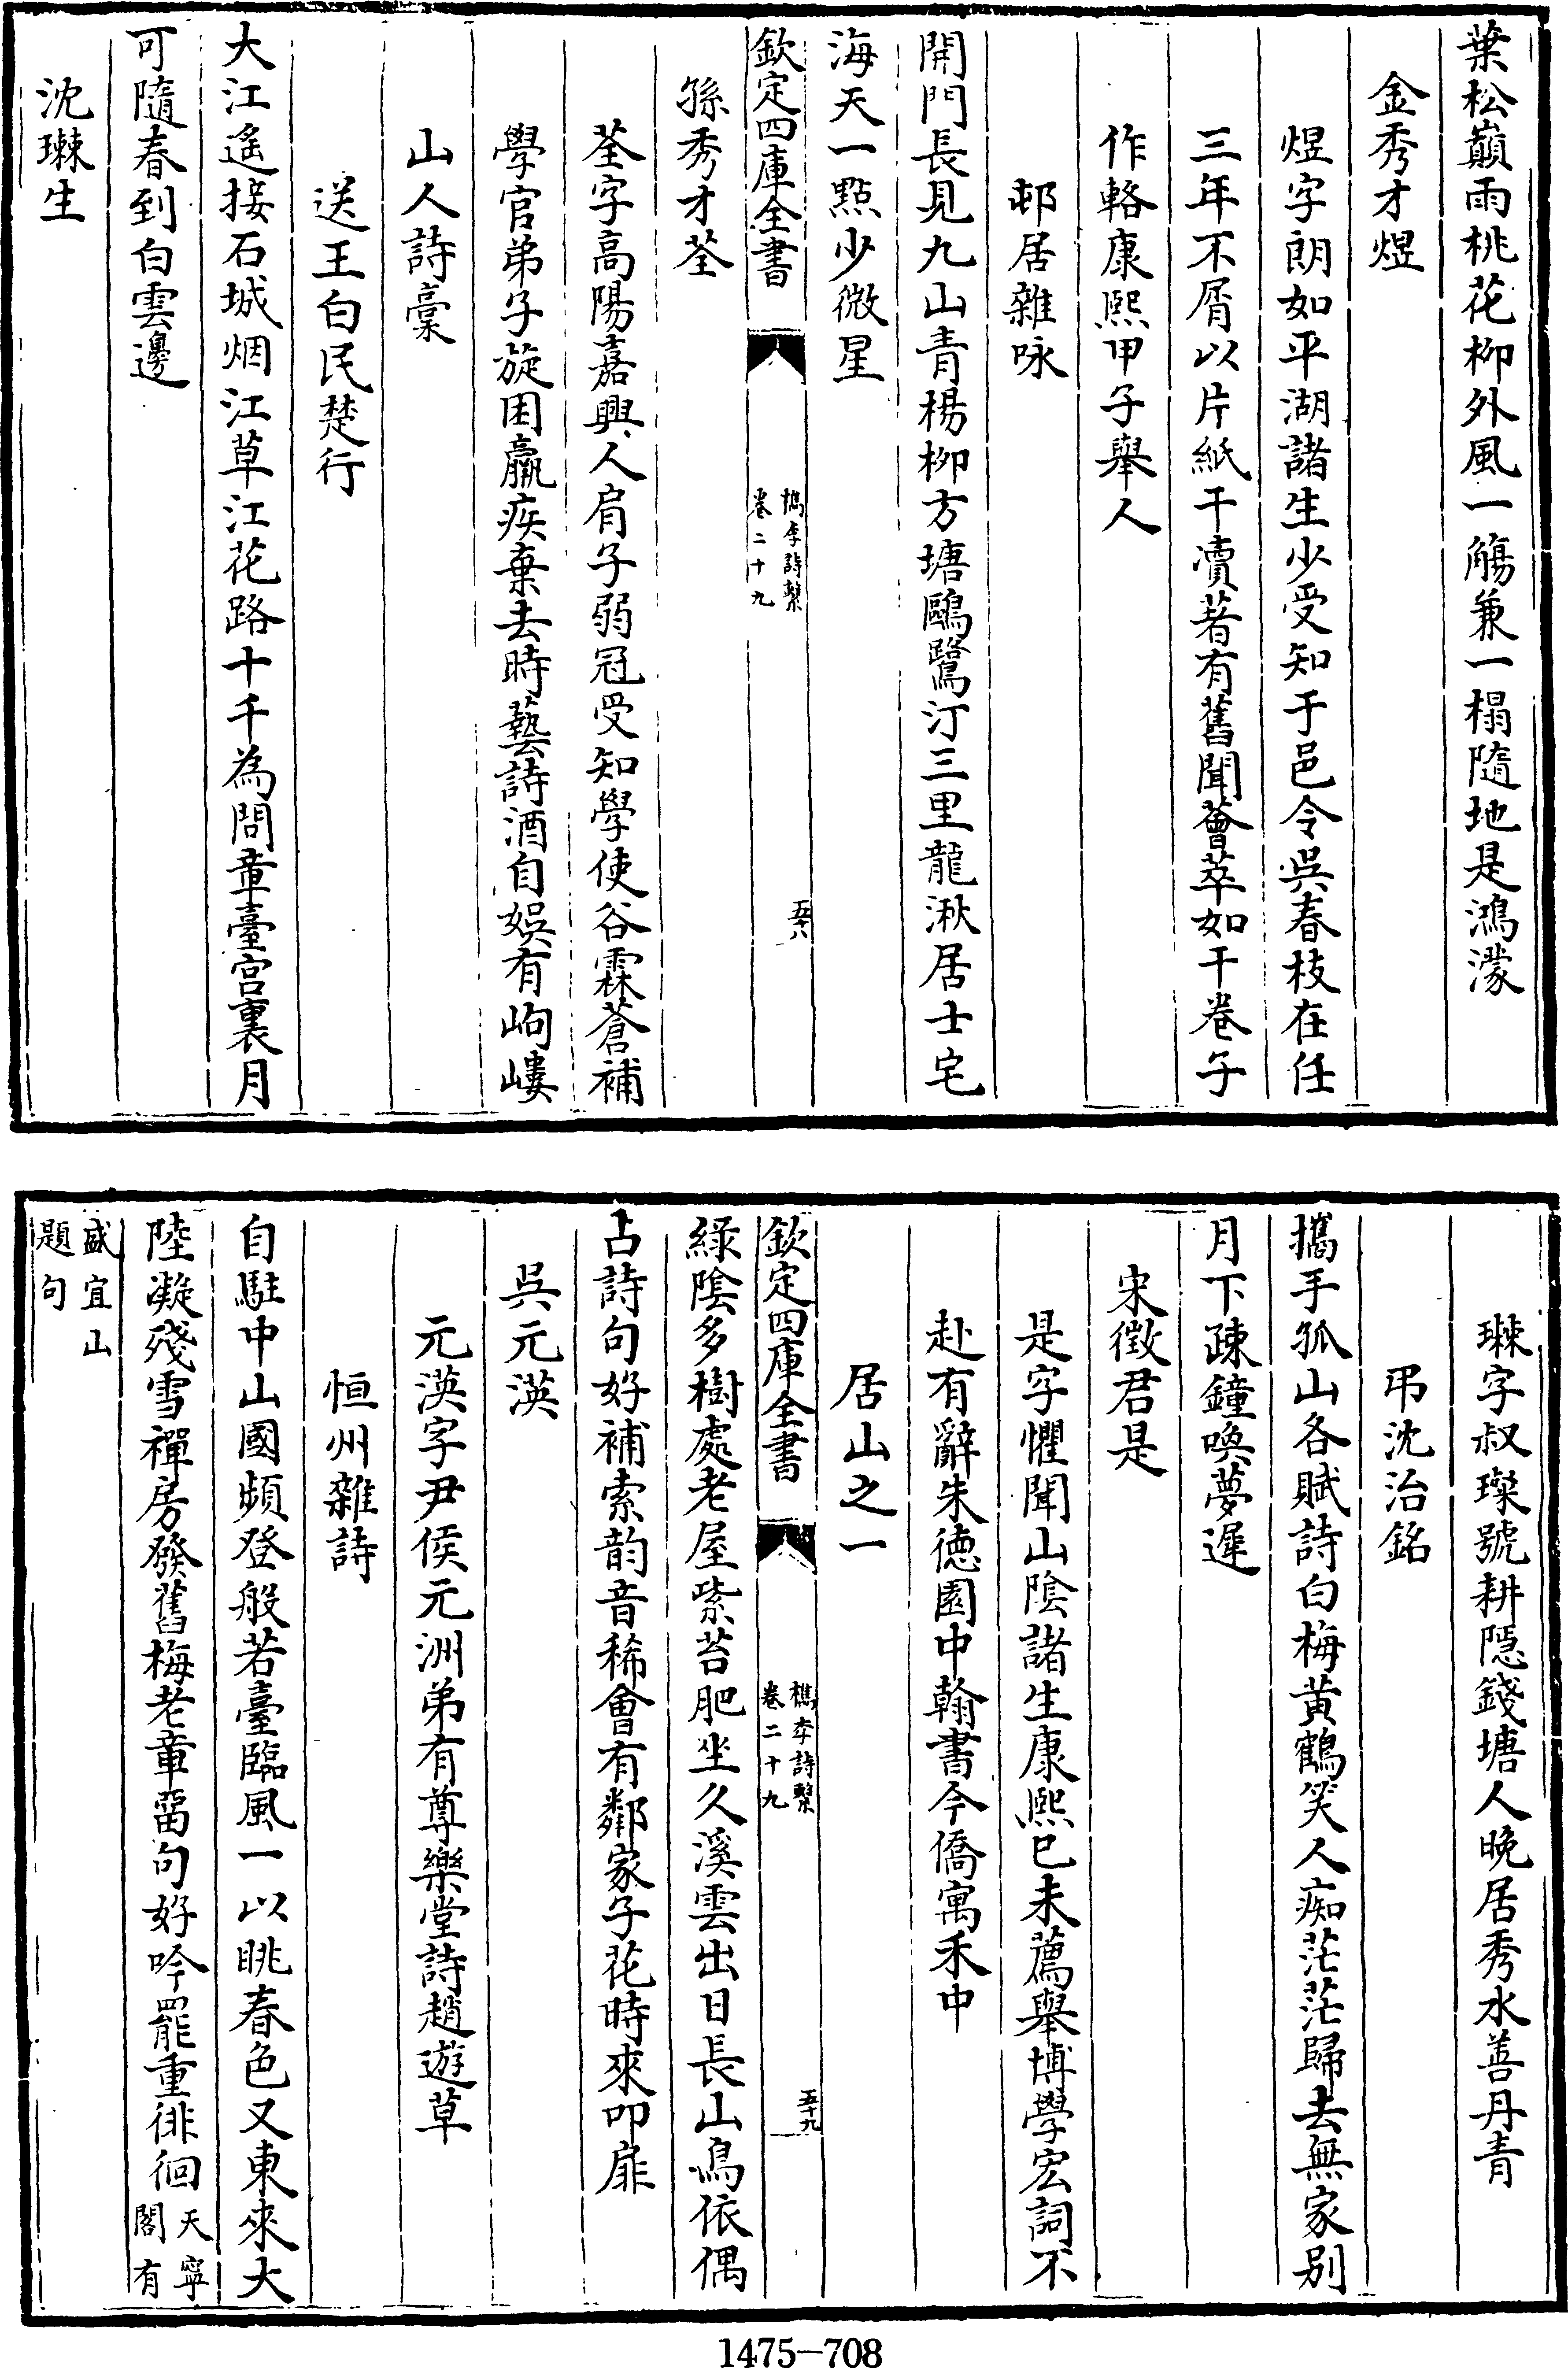 葉松巔雨桃花柳外風一觴兼一榻隨地是鴻濛
金秀才煜
煜字朗如平湖諸生少受知于邑令吳春枝在任
三年不屑以片紙干瀆著有舊聞薈萃如干卷子
作輅康熙甲子舉人
邨居雜咏
開門長見九山青楊栁方塘鷗鷺汀三里龍湫居士宅
海天一㸃少微星
欽定四庫全書
檇李詩繫
卷二十九
五十八
孫秀才荃
荃字高陽嘉興人肩子弱冠受知學使谷霖蒼補
學官弟子旋困羸疾棄去時藝詩酒自娛有岣嶁
山人詩稾
送王白民楚行
大江遙接石城烟江草江花路十千為問章臺宫裏月
可隨春到白雲邊
沈㻋生
㻋字叔璨號耕隱錢塘人晚居秀水善丹青
弔沈治銘
攜手孤山各賦詩白梅黃鶴笑人痴茫茫歸去無家别
月下疎鐘喚夢遲
宋徵君是
是字懼聞山陰諸生康熙已未薦舉博學宏詞不
赴有辭朱徳園中翰書今僑寓禾中
居山之一
欽定四庫全書
檇李詩繫
卷二十九
五十九
緑陰多樹處老屋紫苔肥坐久溪雲出日長山鳥依偶
占詩句好補索韵音稀會有鄰家子花時來叩扉
吳元渶
元渶字尹侯元洲弟有尊樂堂詩趙遊草
恒州雜詩
自駐中山國頻登般若臺臨風一以眺春色又東來大
陸凝殘雪禪房發舊梅老章留句好吟罷重徘徊天寧
閣有
盛宜山
題句
1475-708